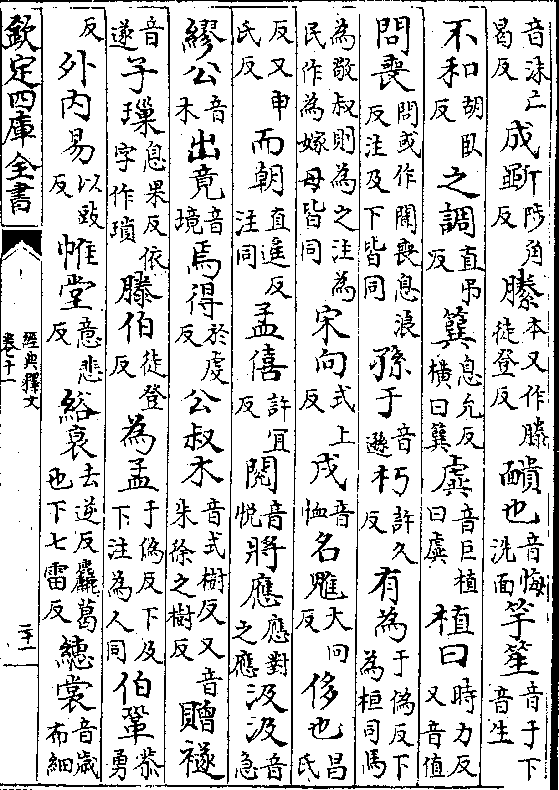 音沬亡曷反成斲陟角反縢本又作滕徒登反靧也音悔洗面竽笙音于下音生
不和胡臥反之調直弔反簨息允反橫曰簨虡音巨植曰虡植曰時力反又音值
問喪問或作聞喪息浪反注及下皆同孫于音遜朽許久反有為于偽反下為桓司馬
為敬叔則為之注為民作為嫁母皆同宋向式上反戌音恤名魋大回反侈也昌氏
反又申氏反而朝直遥反注同孟僖許宜反閱音悅將應應對之應汲汲音急
繆公音木出竟音境焉得於虔反公叔木音式樹反又音朱徐之樹反贈襚
音遂子璅息果反依字作瑣滕伯徒登反為孟于偽反下及下注為人同伯鞏恭勇
反外内易以豉反帷堂意悲反綌衰去逆反麤葛也下七雷反繐裳音歲布細
欽定四庫全書
經典釋文
卷十一
二十一